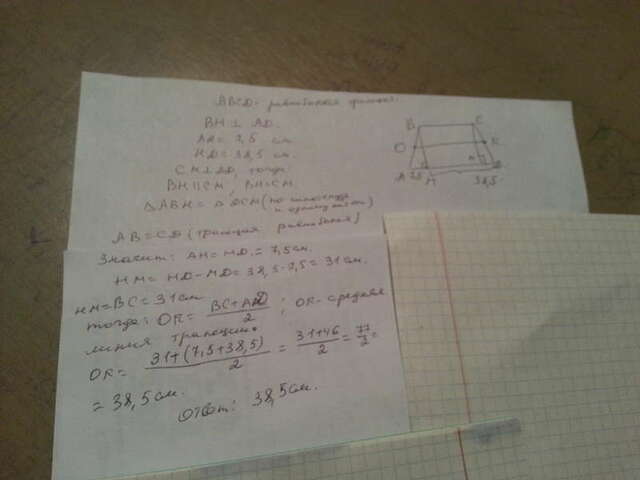 ABCD - равнобокая трапеция.
BH ⊥ AD.
AH = 7,5 см.
HD = 38,5 см.
CM ⊥ AD, тогда
BH ∥ CM, BH = CM
ΔABH = ΔDCM (по гипотенузе
и
AB = CD (трапеция равнобокая)
Значит: AH = MD = 7,5 см.
HM = HD - MD = 38,5 - 7,5 = 31 см.
HM = BC = 31 см
тогда: OK = BC + AD / 2 ; OK - средняя
линия трапеции.
OK = 31 + (7,5 + 38,5) / 2 = 31 + 46 / 2 = 77 / 2 =
= 38,5 см.
Ответ: 38,5 см.
B C
O K
A 7,5 H M D
38,5